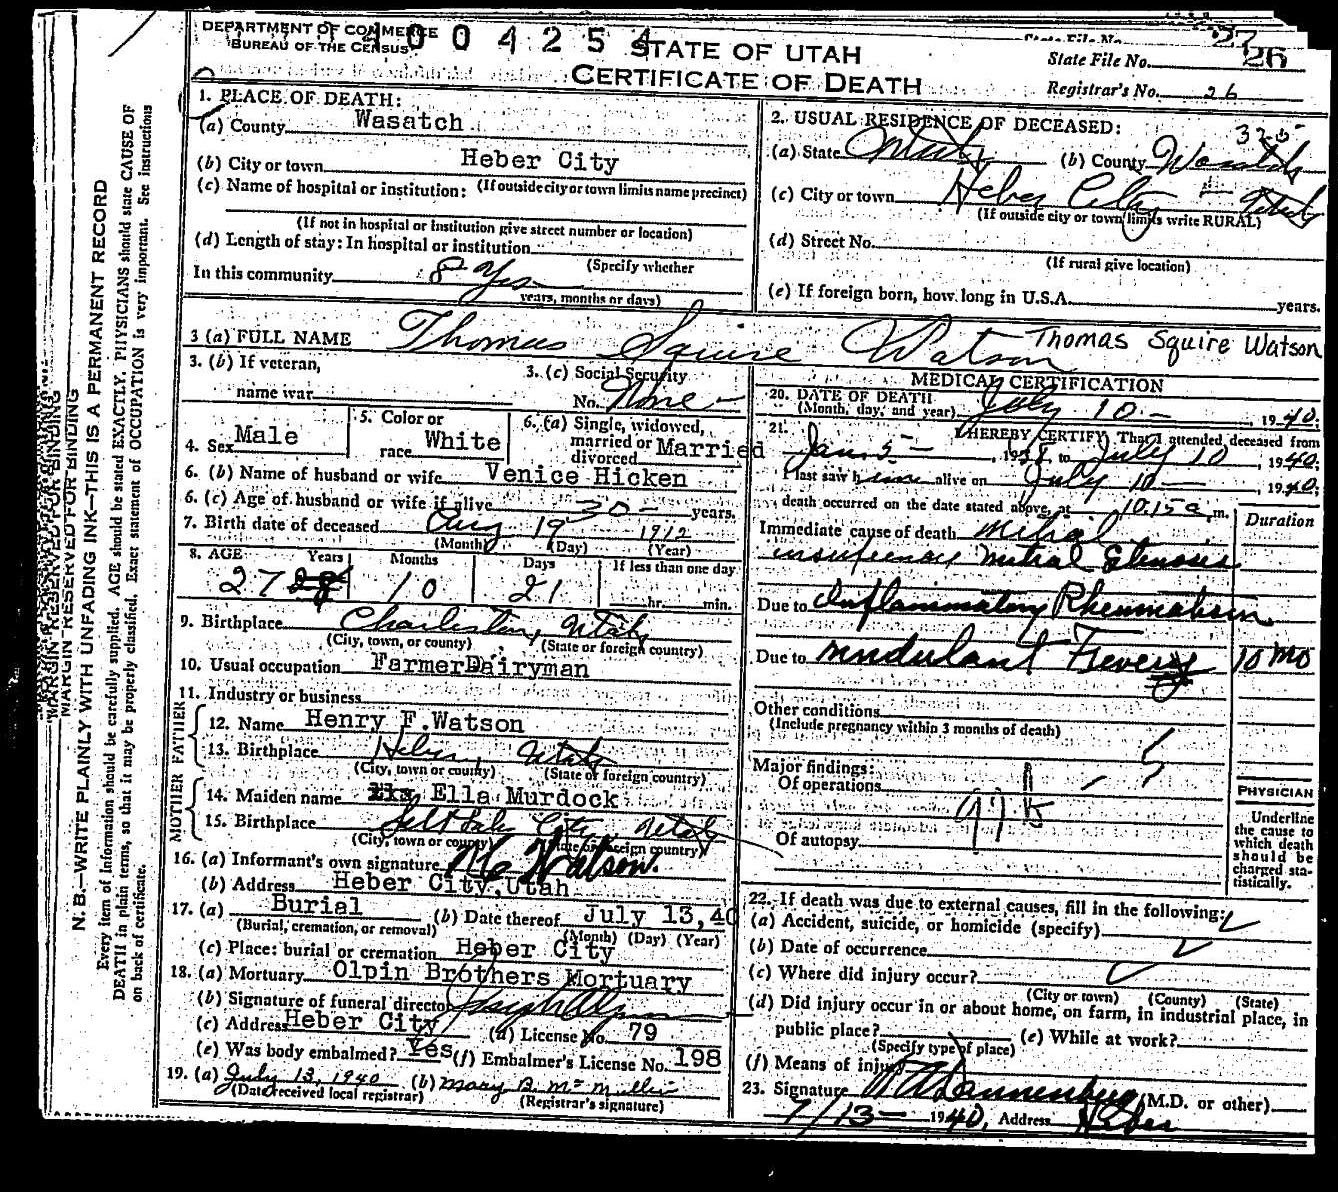 DEPARTMENT OF COMMERCE
BUREAU OF THE CENSUS
1004254
STATE OF UTAH
CERTIFICATE OF DEATH
State File No. 26
Registrar's No. 26
1. PLACE OF DEATH:
(a) County Wasatch
(b) City or town Heber City
(If outside city or town limits name precinct)
(c) Name of hospital or institution:
(If not in hospital or institution give street number or location)
(d) Length of stay: In hospital or institution
(Specify whether
In this community 8 Yrs
years, months or days)
2. USUAL RESIDENCE OF DECEASED:
(a) State Utah (b) County Wasatch
(c) City or town Heber City - Utah
(If outside city or town limits write RURAL)
(d) Street No.
(If rural give location)
(e) If foreign born, how long in U.S.A. years.
3 (a) FULL NAME Thomas Squire Watson Thomas Squire Watson
3. (b) If veteran,
name war
3. (c) Social Security
No. None -
4. Sex Male
5. Color or
race White
6. (a) Single, widowed,
married or
divorced Married
6. (b) Name of husband or wife Venice Hicken
6. (c) Age of husband or wife if alive 30 - years.
7. Birth date of deceased Aug 19 1912
(Month) (Day) (Year)
8. AGE Years Months Days If less than one day
27 28 10 21 hr. min.
9. Birthplace Charleston, Utah
(City, town, or county) (State or foreign country)
10. Usual occupation FarmerDairyman
11. Industry or business
FATHER
12. Name Henry F. Watson
13. Birthplace Heber, Utah
(City, town or county) (State or foreign country)
MOTHER
14. Maiden name Ella Murdock
15. Birthplace Salt Lake City Utah
(City, town or county) (State or foreign country)
16. (a) Informant's own signature Watson.
(b) Address Heber City, Utah
17. (a) Burial (b) Date thereof July 13, 40
(Burial, cremation, or removal) (Month) (Day) (Year)
(c) Place: burial or cremation Heber City
18. (a) Mortuary Olpin Brothers Mortuary
(b) Signature of funeral director
(c) Address Heber City (d) License No. 79
(e) Was body embalmed? Yes (f) Embalmer's License No. 198
19. (a) July 13, 1940 (b) Mary B. McMullin
(Date received local registrar) (Registrar's signature)
MEDICAL CERTIFICATION
20. DATE OF DEATH
(Month, day, and year) July 10 - , 1940;
21. I HEREBY CERTIFY, That I attended deceased from
Jan. 5 - , to July 10 , 1940;
I last saw him alive on July 10 - , 1940;
death occurred on the date stated above, at 10:15 a. m.
Duration
Immediate cause of death Mitral
insuficiency Mitral Stenosis
Due to Inflammatory Rheumatism
Due to undulant Fever 10 mo
Other conditions
(Include pregnancy within 3 months of death)
Major findings:
Of operations
Of autopsy
PHYSICIAN
Underline
the cause to
which death
should be
charged sta-
tistically.
22. If death was due to external causes, fill in the following:
(a) Accident, suicide, or homicide (specify)
(b) Date of occurrence
(c) Where did injury occur?
(City or town) (County) (State)
(d) Did injury occur in or about home, on farm, in industrial place, in
public place? (e) While at work?
(Specify type of place)
(f) Means of injury
23. Signature Dannenberg (M.D. or other)
7/13 - 1940, Address Heber
MARGIN RESERVED FOR BINDING
N. B.—WRITE PLAINLY WITH UNFADING INK—THIS IS A PERMANENT RECORD
Every item of information should be carefully supplied. AGE should be stated EXACTLY. PHYSICIANS should state CAUSE OF
DEATH in plain terms, so that it may be properly classified. Exact statement of OCCUPATION is very important. See instructions
on back of certificate.